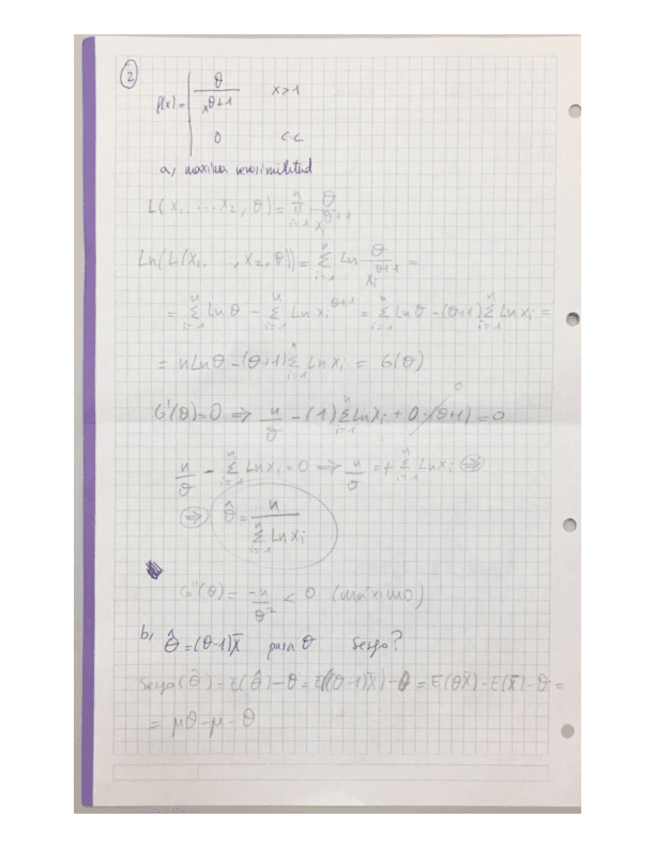 2
f(x) = θ / x^(θ+1) x>1
0 c.c
a, maxima verosimilitud
L(x₁, ... x₂, θ) = n π i=1 θ / xᵢ^(θ+1)
Ln(L(x₁. . , x₂, θ)) = n Σ i=1 Ln θ / xᵢ^(θ+1) =
= n Σ i=1 Ln θ - n Σ i=1 Ln xᵢ^(θ+1) = n Σ i=1 Ln θ - (θ+1) n Σ i=1 Ln xᵢ =
= n Ln θ - (θ+1) n Σ i=1 Ln xᵢ = G(θ)
G'(θ)=0 ⇒ n/θ - (1) n Σ i=1 Ln xᵢ + 0·(θ+1) = 0 0
n/θ - n Σ i=1 Ln xᵢ = 0 ⇒ n/θ = + n Σ i=1 Ln xᵢ ⇒
⇒ θ̂ = n / n Σ i=1 Ln xᵢ
G''(θ) = -n/θ² < 0 (maximo)
b, θ̂ = (θ-1)x̄ para θ Sesgo?
Sesgo(θ̂) = E(θ̂) - θ = E((θ-1)x̄) - θ = E(θx̄) - E(x̄) - θ =
= μθ - μ - θ